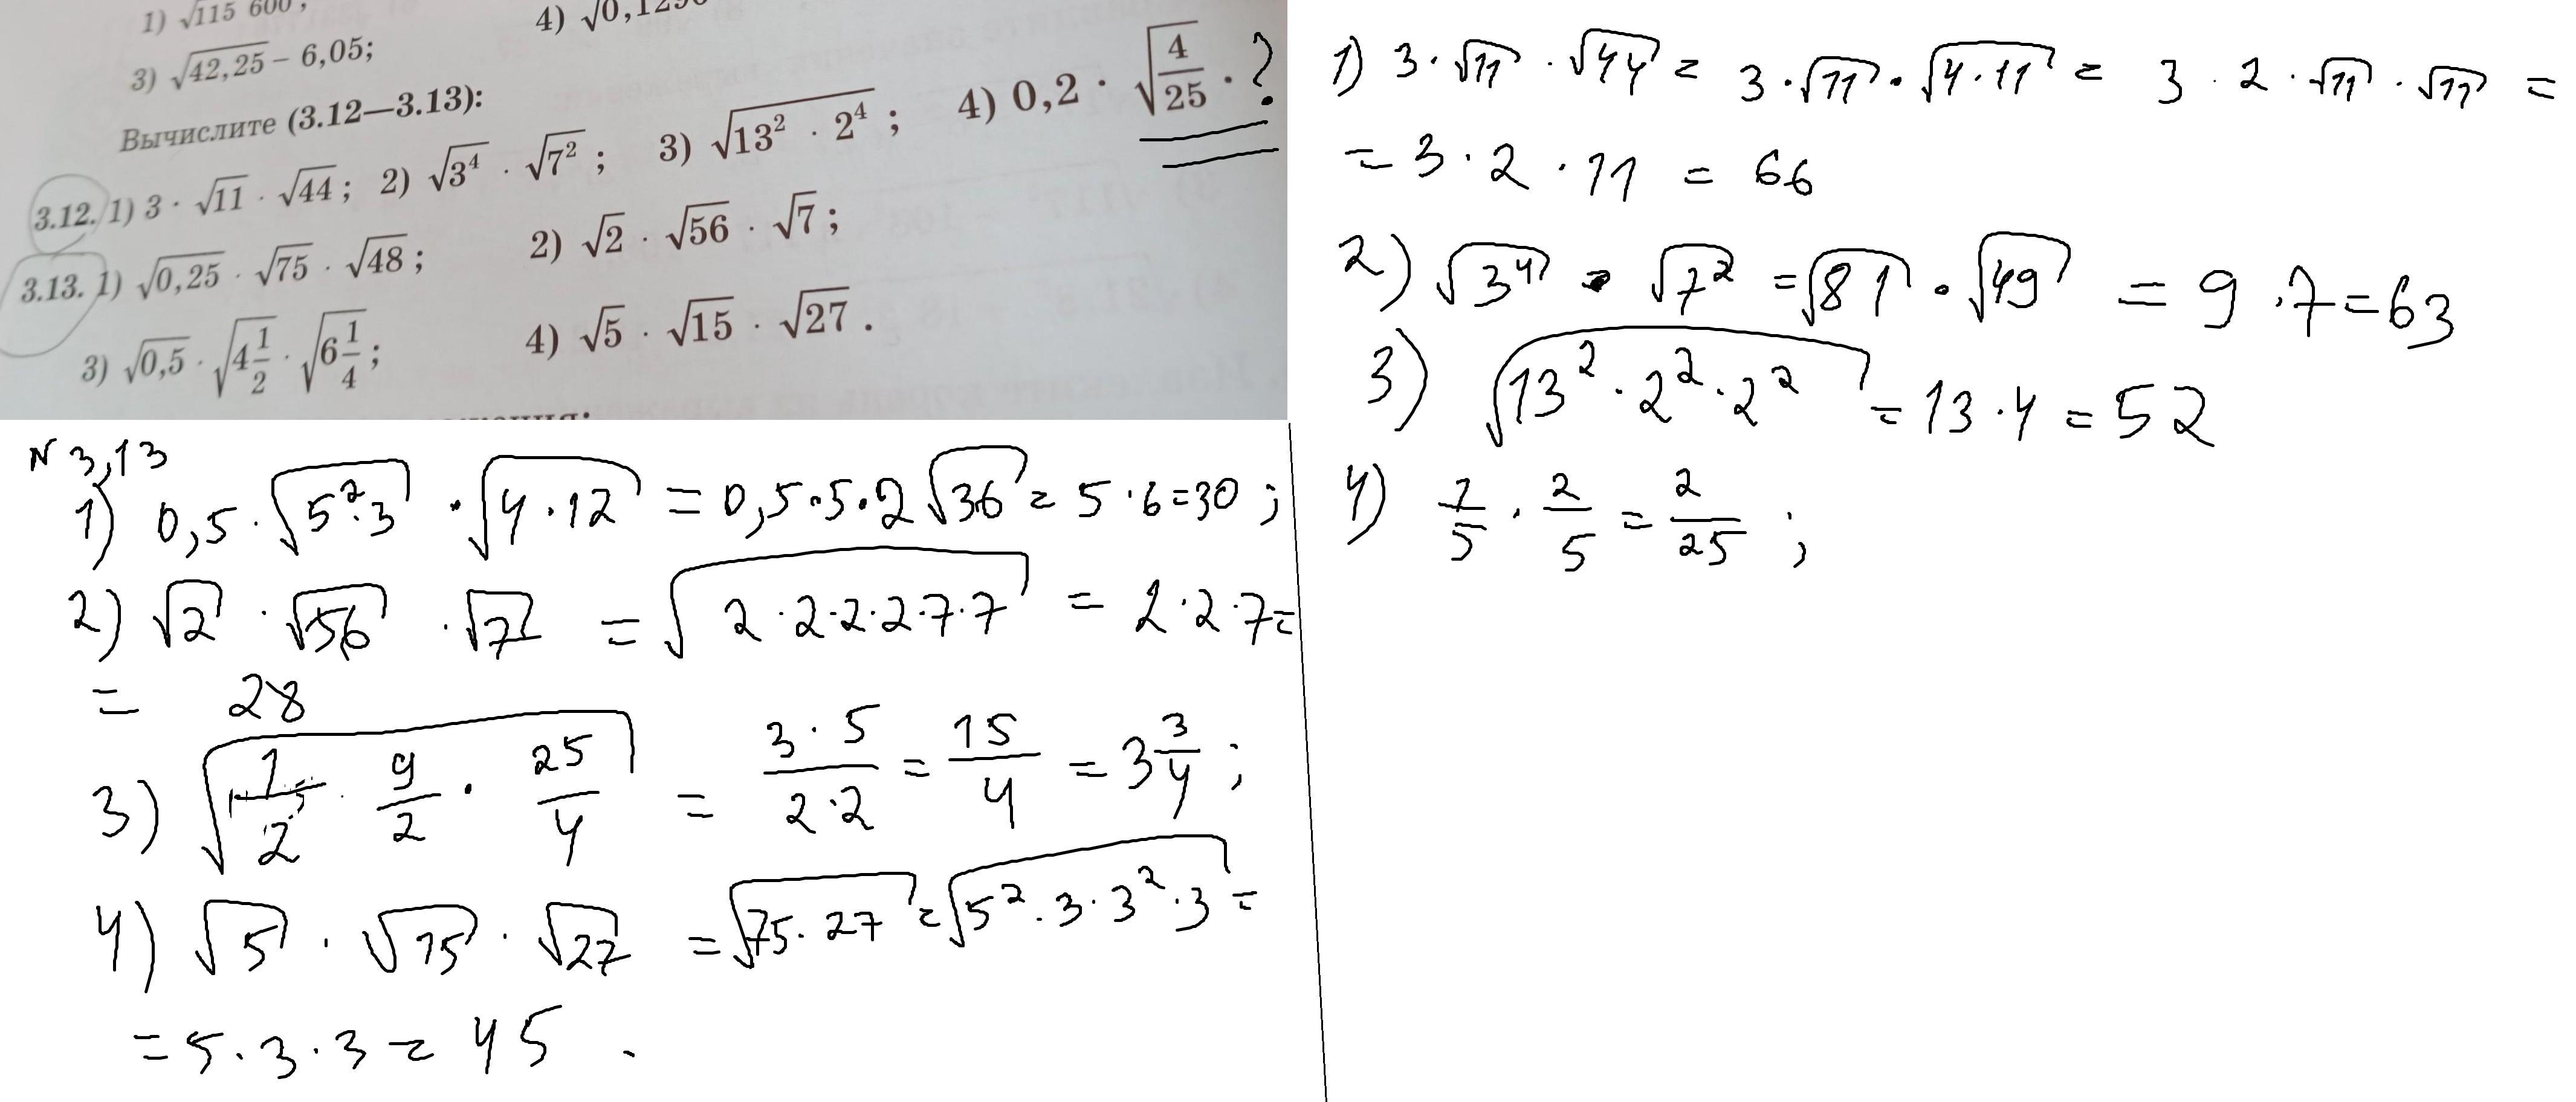 1) √115 600;
4) √0,129
3) √42,25 − 6,05;
Вычислите (3.12—3.13):
3.12. 1) 3 · √11 · √44; 2) √3⁴ · √7²; 3) √(13² · 2⁴); 4) 0,2 · √(4/25) · ?
3.13. 1) √0,25 · √75 · √48; 2) √2 · √56 · √7;
3) √0,5 · √(4 1/2) · √(6 1/4); 4) √5 · √15 · √27.
1) 3 · √11 · √44 = 3 · √11 · √(4 · 11) = 3 · 2 · √11 · √11 =
= 3 · 2 · 11 = 66
2) √3⁴ · √7² = √81 · √49 = 9 · 7 = 63
3) √(13² · 2² · 2²) = 13 · 4 = 52
4) 1/5 · 2/5 = 2/25 ;
N 3,13
1) 0,5 · √(5² · 3) · √(4 · 12) = 0,5 · 5 · 2 √36 = 5 · 6 = 30 ;
2) √2 · √56 · √7 = √(2 · 2 · 2 · 2 · 7 · 7) = 2 · 2 · 7 =
= 28
3) √(1/2 · 9/2 · 25/4) = (3 · 5)/(2 · 2) = 15/4 = 3 3/4 ;
4) √5 · √15 · √27 = √(75 · 27) = √(5² · 3 · 3² · 3) =
= 5 · 3 · 3 = 45 .